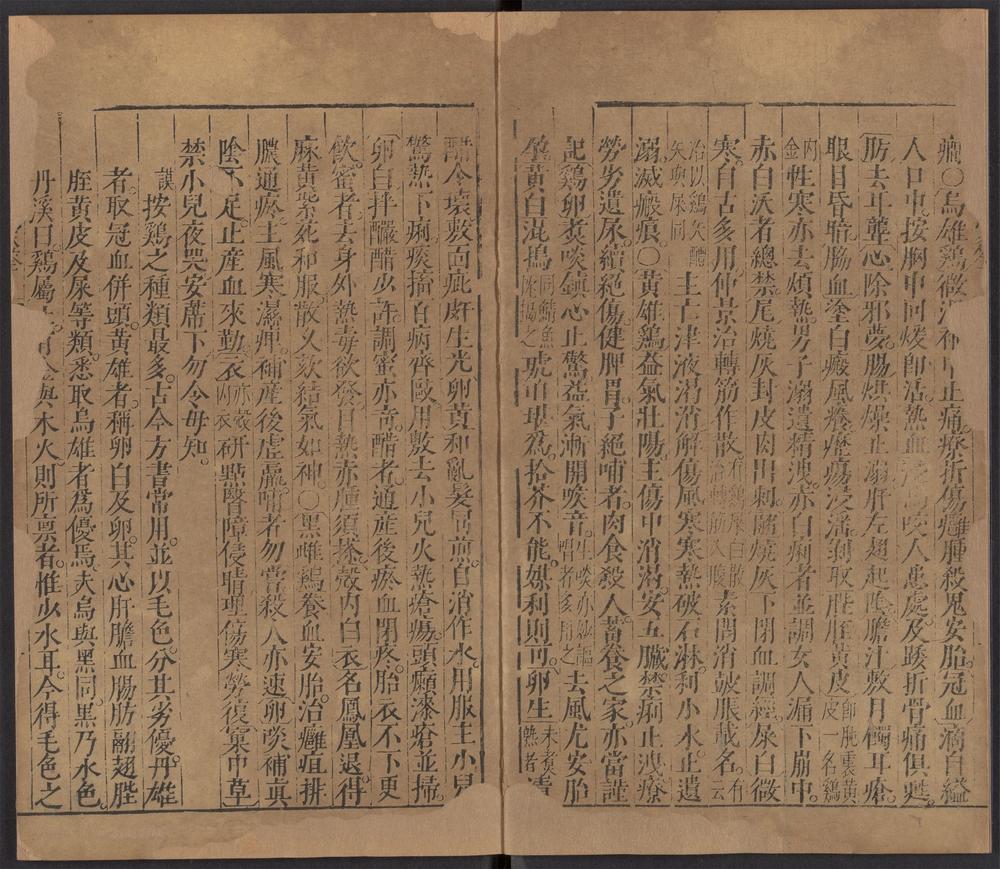 痛○烏雄鷄微溫補中止痛療折傷癰腫殺鬼安胎冠血滴自縊
人口中按胸中回煖卽活熱血人患處及踒折骨痛俱甦
肪去耳聾心除邪夢腸烘燥止溺肝左翅起陰膽汁敷月欄耳瘡
眼目昏暗腸血塗白癜風癢癧瘍浸淫剌取肶胵黃皮卽肶裏黃皮一名鷄
內金性寒亦去煩熱男子溺遺精洩赤白痢者並調女人漏下崩中
赤白沃者總禁尾燒灰封皮肉出刺髓燒灰下閉血調經屎白微
寒自古多用仲景治轉筋作散有鷄屎白散治轉筋入腹素問消皷脹載名有云
治以鷄矢醴矢與屎同主亡津液渴消解傷風寒寒熱破石淋利小水止遺
溺滅瘢痕○黃雄鷄益氣壯陽主傷中消渴安五臟禁痢止洩療
勞劣遺尿續絕傷健脾胃子絕哺者肉食殺人蓄養之家亦當謹
記鷄卵煮啖鎮心止驚益氣漸開喉音生啖亦妙謳唱者多用之去風尤安胎
孕黃白混搗同鰾魚琥珀堪爲拾芥不能媒利則可卵生未煮熟者漬
醋令壞敷面疵皯生光卵黃和亂髮同煎自消作水用服主小兒
驚熱下痢痰搐百病齊敺用敷去小兒火熱瘡瘍頭癩漆瘡並掃
卵白拌釅醋少許調蜜亦奇醋者通產後瘀血閉疼胎衣不下更
飲蜜者去身外熱毒欲發目熱亦腫須搽殼內白衣名鳳凰退得
麻黃紫菀和服散久欬結氣如神○黑雌鷄養血安胎治癰疽排
膿通瘀主風寒濕痺補產後虛羸哺者勿嘗殺人亦速卵啖補眞
陰不足止產血來勤衣亦殼內衣研點瞖障侵睛理傷寒勞復窠中草
禁小兒夜哭安蓆下勿令母知
謨按鷄之種類最多古今方書常用並以毛色分其劣優丹雄
者取冠血併頭黃雄者稱卵白及卵其心肝膽血腸肪翮翅肶
胵黃皮及屎等類悉取烏雄者爲優焉夫烏與黑同黑乃水色
丹溪曰鷄屬與木火則所禀者惟少水耳今得毛色之